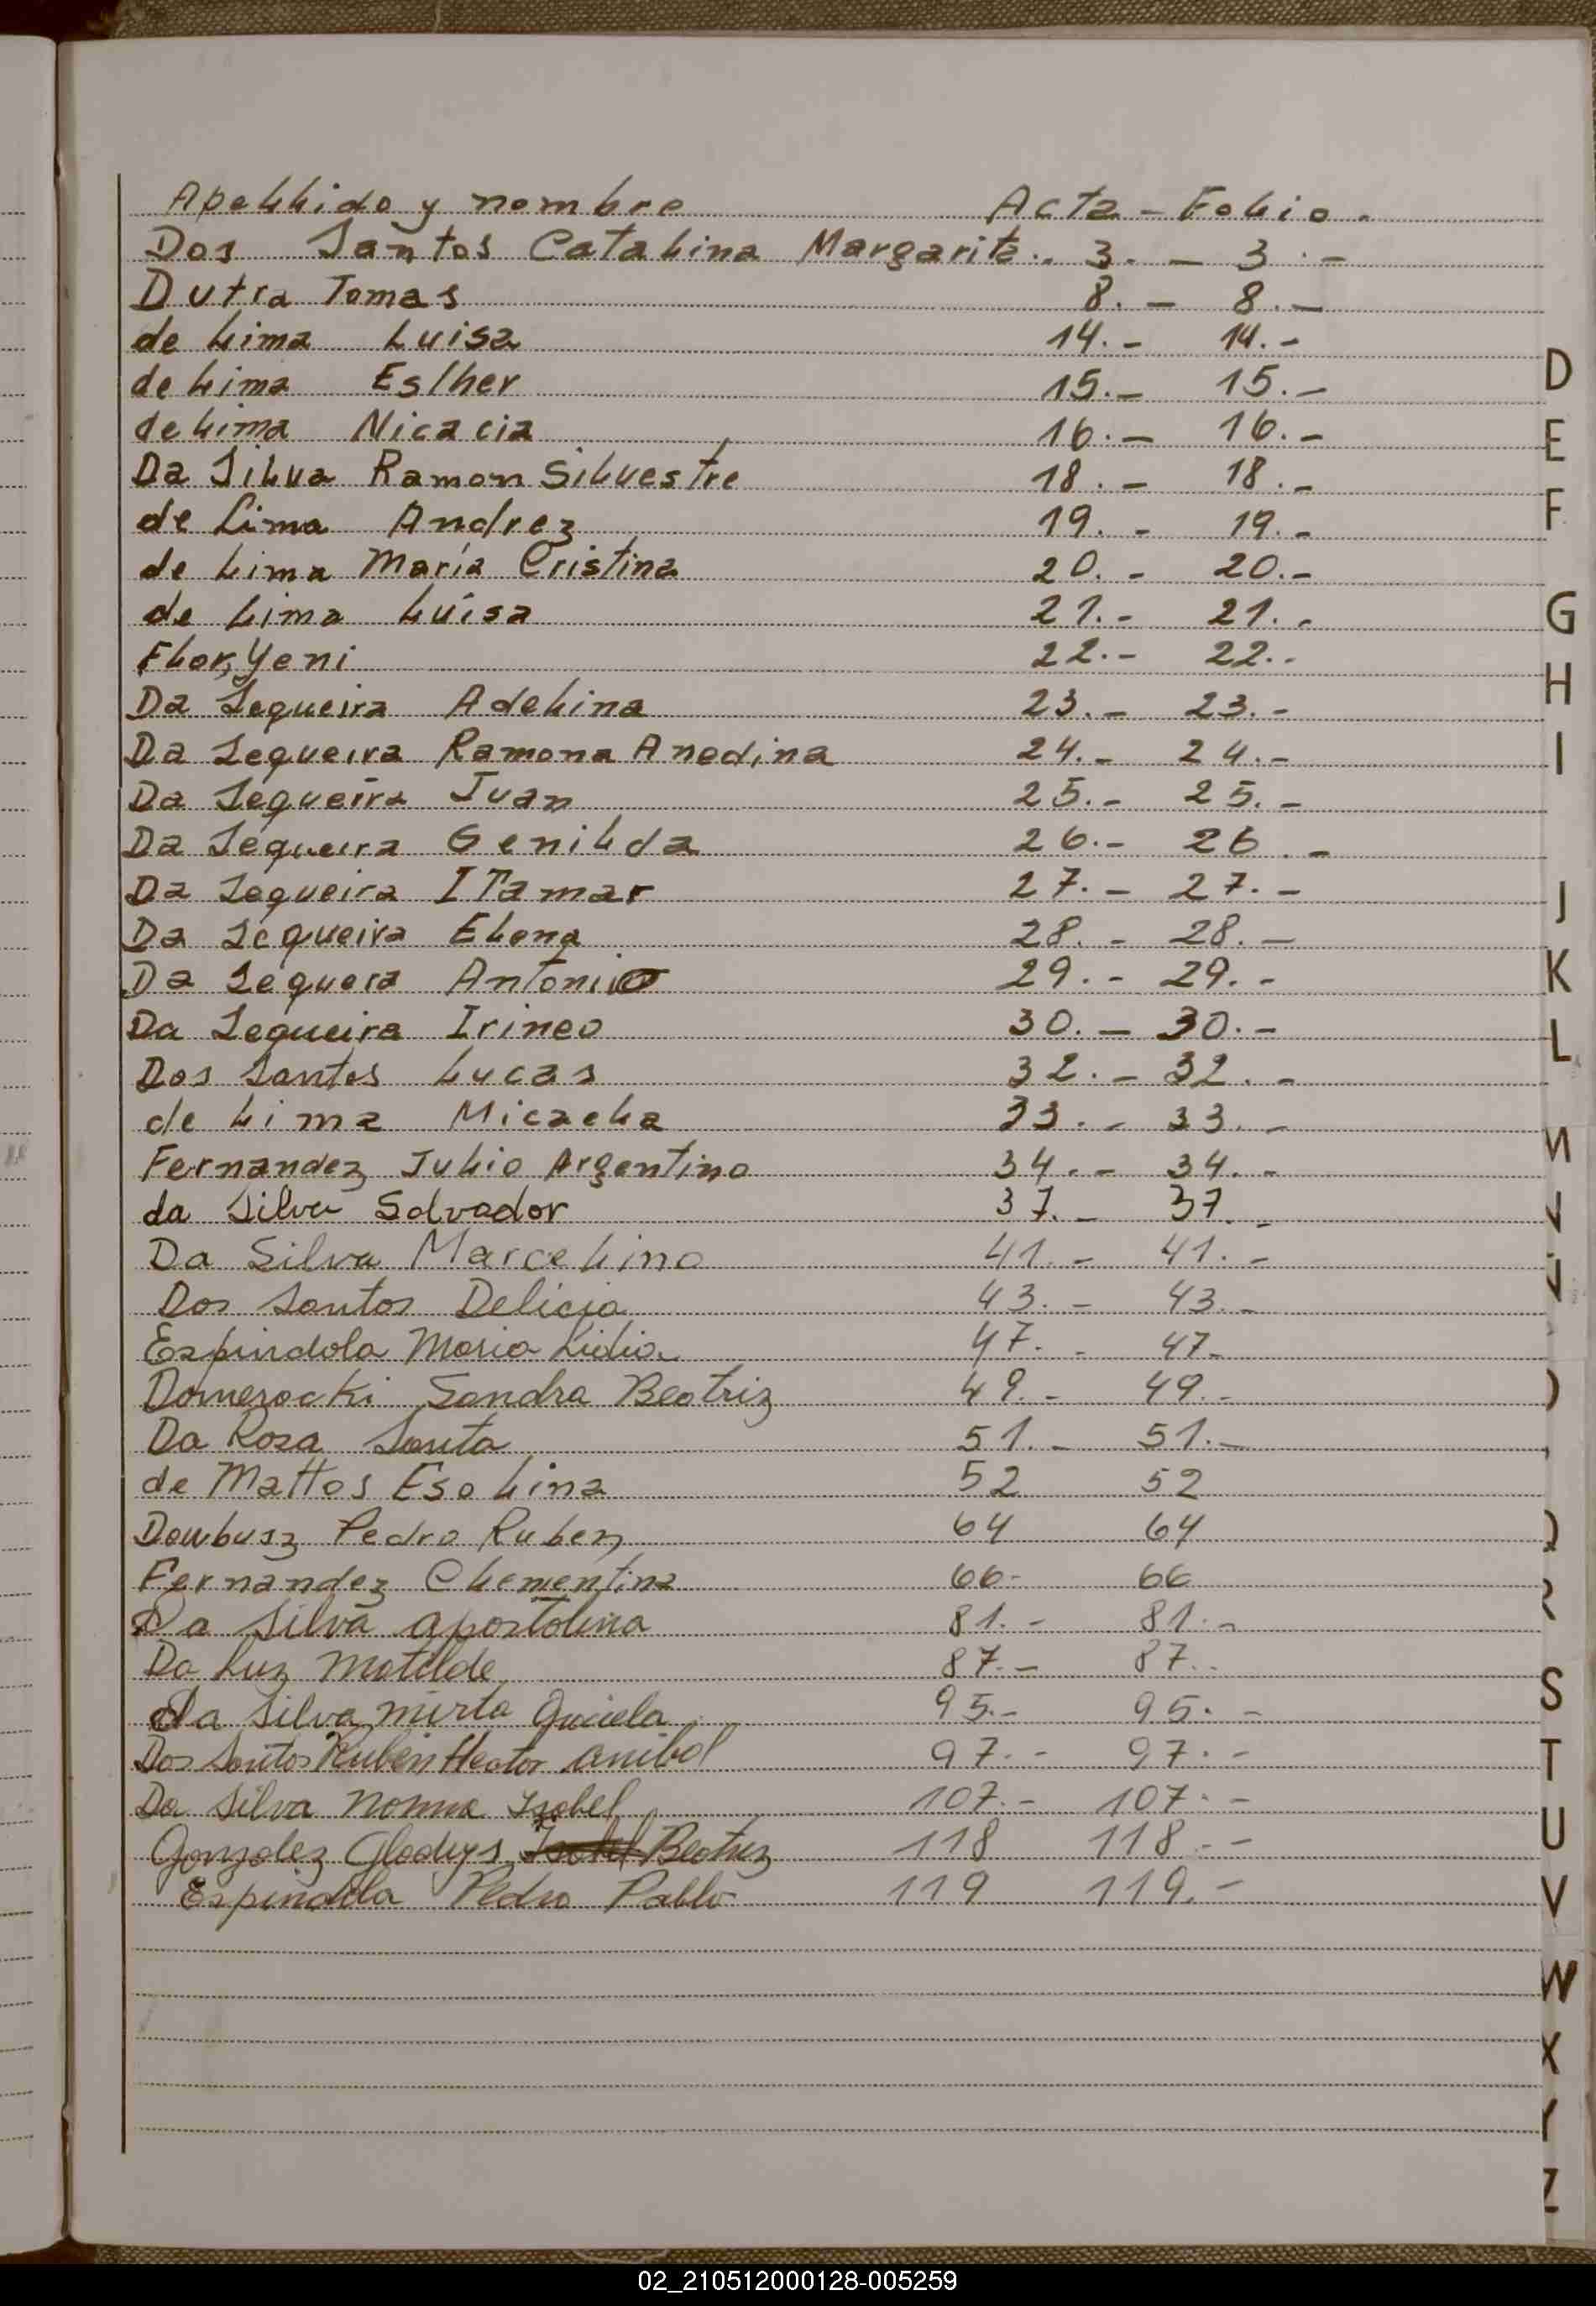 Apellido y nombre Acta - Folio.
Dos Santos Catalina Margarita.. 3. - 3. -
Dutra Tomas 8. - 8. -
de Lima Luisa 14. - 14. -
de Lima Eslher 15. - 15. -
de Lima Nicacia 16. - 16. -
Da Silva Ramon Silvestre 18. - 18. -
de Lima Andrez 19. - 19. -
de Lima María Cristina 20. - 20. -
de Lima Luísa 21. - 21. -
Flor, Yeni 22. - 22. -
Da Sequeira Adelina 23. - 23. -
Da Sequeira Ramona Anedina 24. - 24. -
Da Sequeira Juan 25. - 25. -
Da Sequeira Genilda 26. - 26. -
Da Sequeira ITamar 27. - 27. -
Da Sequeira Elena 28. - 28. -
Da Sequera Antonio 29. - 29. -
Da Sequeira Irineo 30. - 30. -
Dos Santos Lucas 32. - 32. -
de Lima Micaela 33. - 33. -
Fernandez Julio Argentino 34. - 34. -
da Silva Salvador 37. - 37. -
Da Silva Marcelino 41. - 41. -
Dos Santos Delicia 43. - 43. -
Espindola Maria Lidia 47. - 47. -
Domerocki Sandra Beatriz 49. - 49. -
Da Rosa Santa 51. - 51. -
de Mattos Esolina 52 52
Pedro Ruben 64 64
Fernandez Clementina 66 - 66
Da Silva apostolina 81. - 81. -
Da Luz Matilde 87. - 87. -
da Silva mirta Graciela 95. - 95. -
Dos Santos Ruben Hector anibal 97. - 97. -
Da Silva Norma Isabel 107. - 107. -
Gonzalez Gladys Isabel Beatriz 118 118. -
Espindola Pedro Pablo 119 119. -
D
E
F
G
H
I
J
K
L
R
S
T
U
V
W
X
Y
Z
02_210512000128-005259